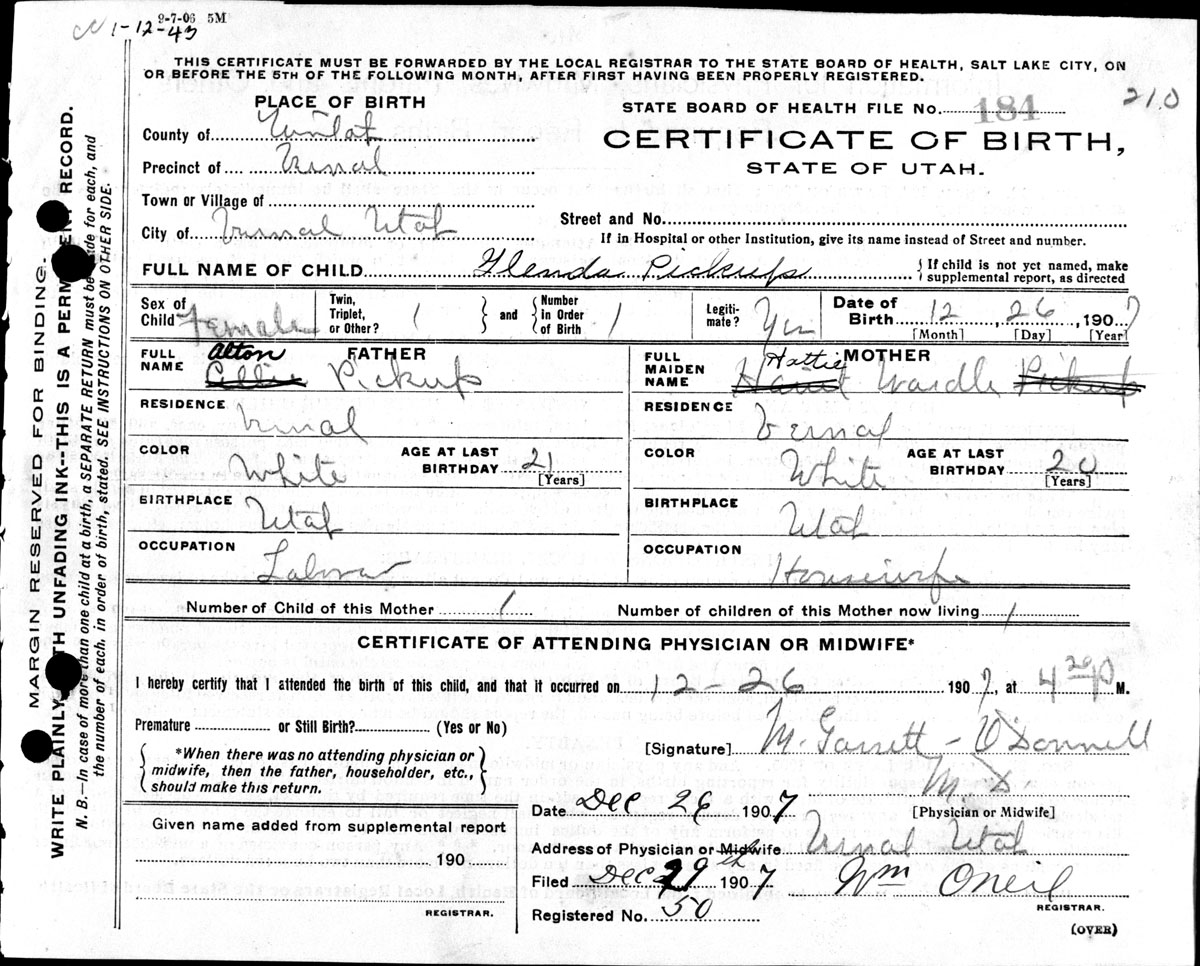 9-7-06 5M
1-12-43
THIS CERTIFICATE MUST BE FORWARDED BY THE LOCAL REGISTRAR TO THE STATE BOARD OF HEALTH, SALT LAKE CITY, ON
OR BEFORE THE 5TH OF THE FOLLOWING MONTH, AFTER FIRST HAVING BEEN PROPERLY REGISTERED.
210
PLACE OF BIRTH
STATE BOARD OF HEALTH FILE No. 184
County of Uintah
CERTIFICATE OF BIRTH,
Precinct of Vernal
STATE OF UTAH.
Town or Village of
Street and No.
City of Vernal Utah
If in Hospital or other Institution, give its name instead of Street and number.
FULL NAME OF CHILD Glenda Pickup
{ If child is not yet named, make
supplemental report, as directed
Sex of Child Female
Twin, Triplet, or Other? 1
and
Number in Order of Birth 1
Legiti-mate? Yes
Date of Birth 12 26, 1907
[Month] [Day] [Year]
FATHER
FULL NAME Alton Pickup
MOTHER
FULL MAIDEN NAME Hattie Wardle Pickup
RESIDENCE Vernal
RESIDENCE Vernal
COLOR White
AGE AT LAST BIRTHDAY 21 [Years]
COLOR White
AGE AT LAST BIRTHDAY 20 [Years]
BIRTHPLACE Utah
BIRTHPLACE Utah
OCCUPATION Labor
OCCUPATION Housewife
Number of Child of this Mother 1
Number of children of this Mother now living 1
CERTIFICATE OF ATTENDING PHYSICIAN OR MIDWIFE*
I hereby certify that I attended the birth of this child, and that it occurred on 12-26 1907, at 4 20 P M.
Premature or Still Birth? (Yes or No)
*When there was no attending physician or
midwife, then the father, householder, etc.,
should make this return.
[Signature] M. Garrett-O'Donnell
M.D.
[Physician or Midwife]
Given name added from supplemental report
190
REGISTRAR.
Date Dec 26 1907
Address of Physician or Midwife Vernal Utah
Filed Dec 29th 1907 Wm Oneil
REGISTRAR.
Registered No. 50
(OVER)
MARGIN RESERVED FOR BINDING.
WRITE PLAINLY WITH UNFADING INK--THIS IS A PERMANENT RECORD.
N. B.—In case of more than one child at a birth, a SEPARATE RETURN must be made for each, and
the number of each, in order of birth, stated. SEE INSTRUCTIONS ON OTHER SIDE.